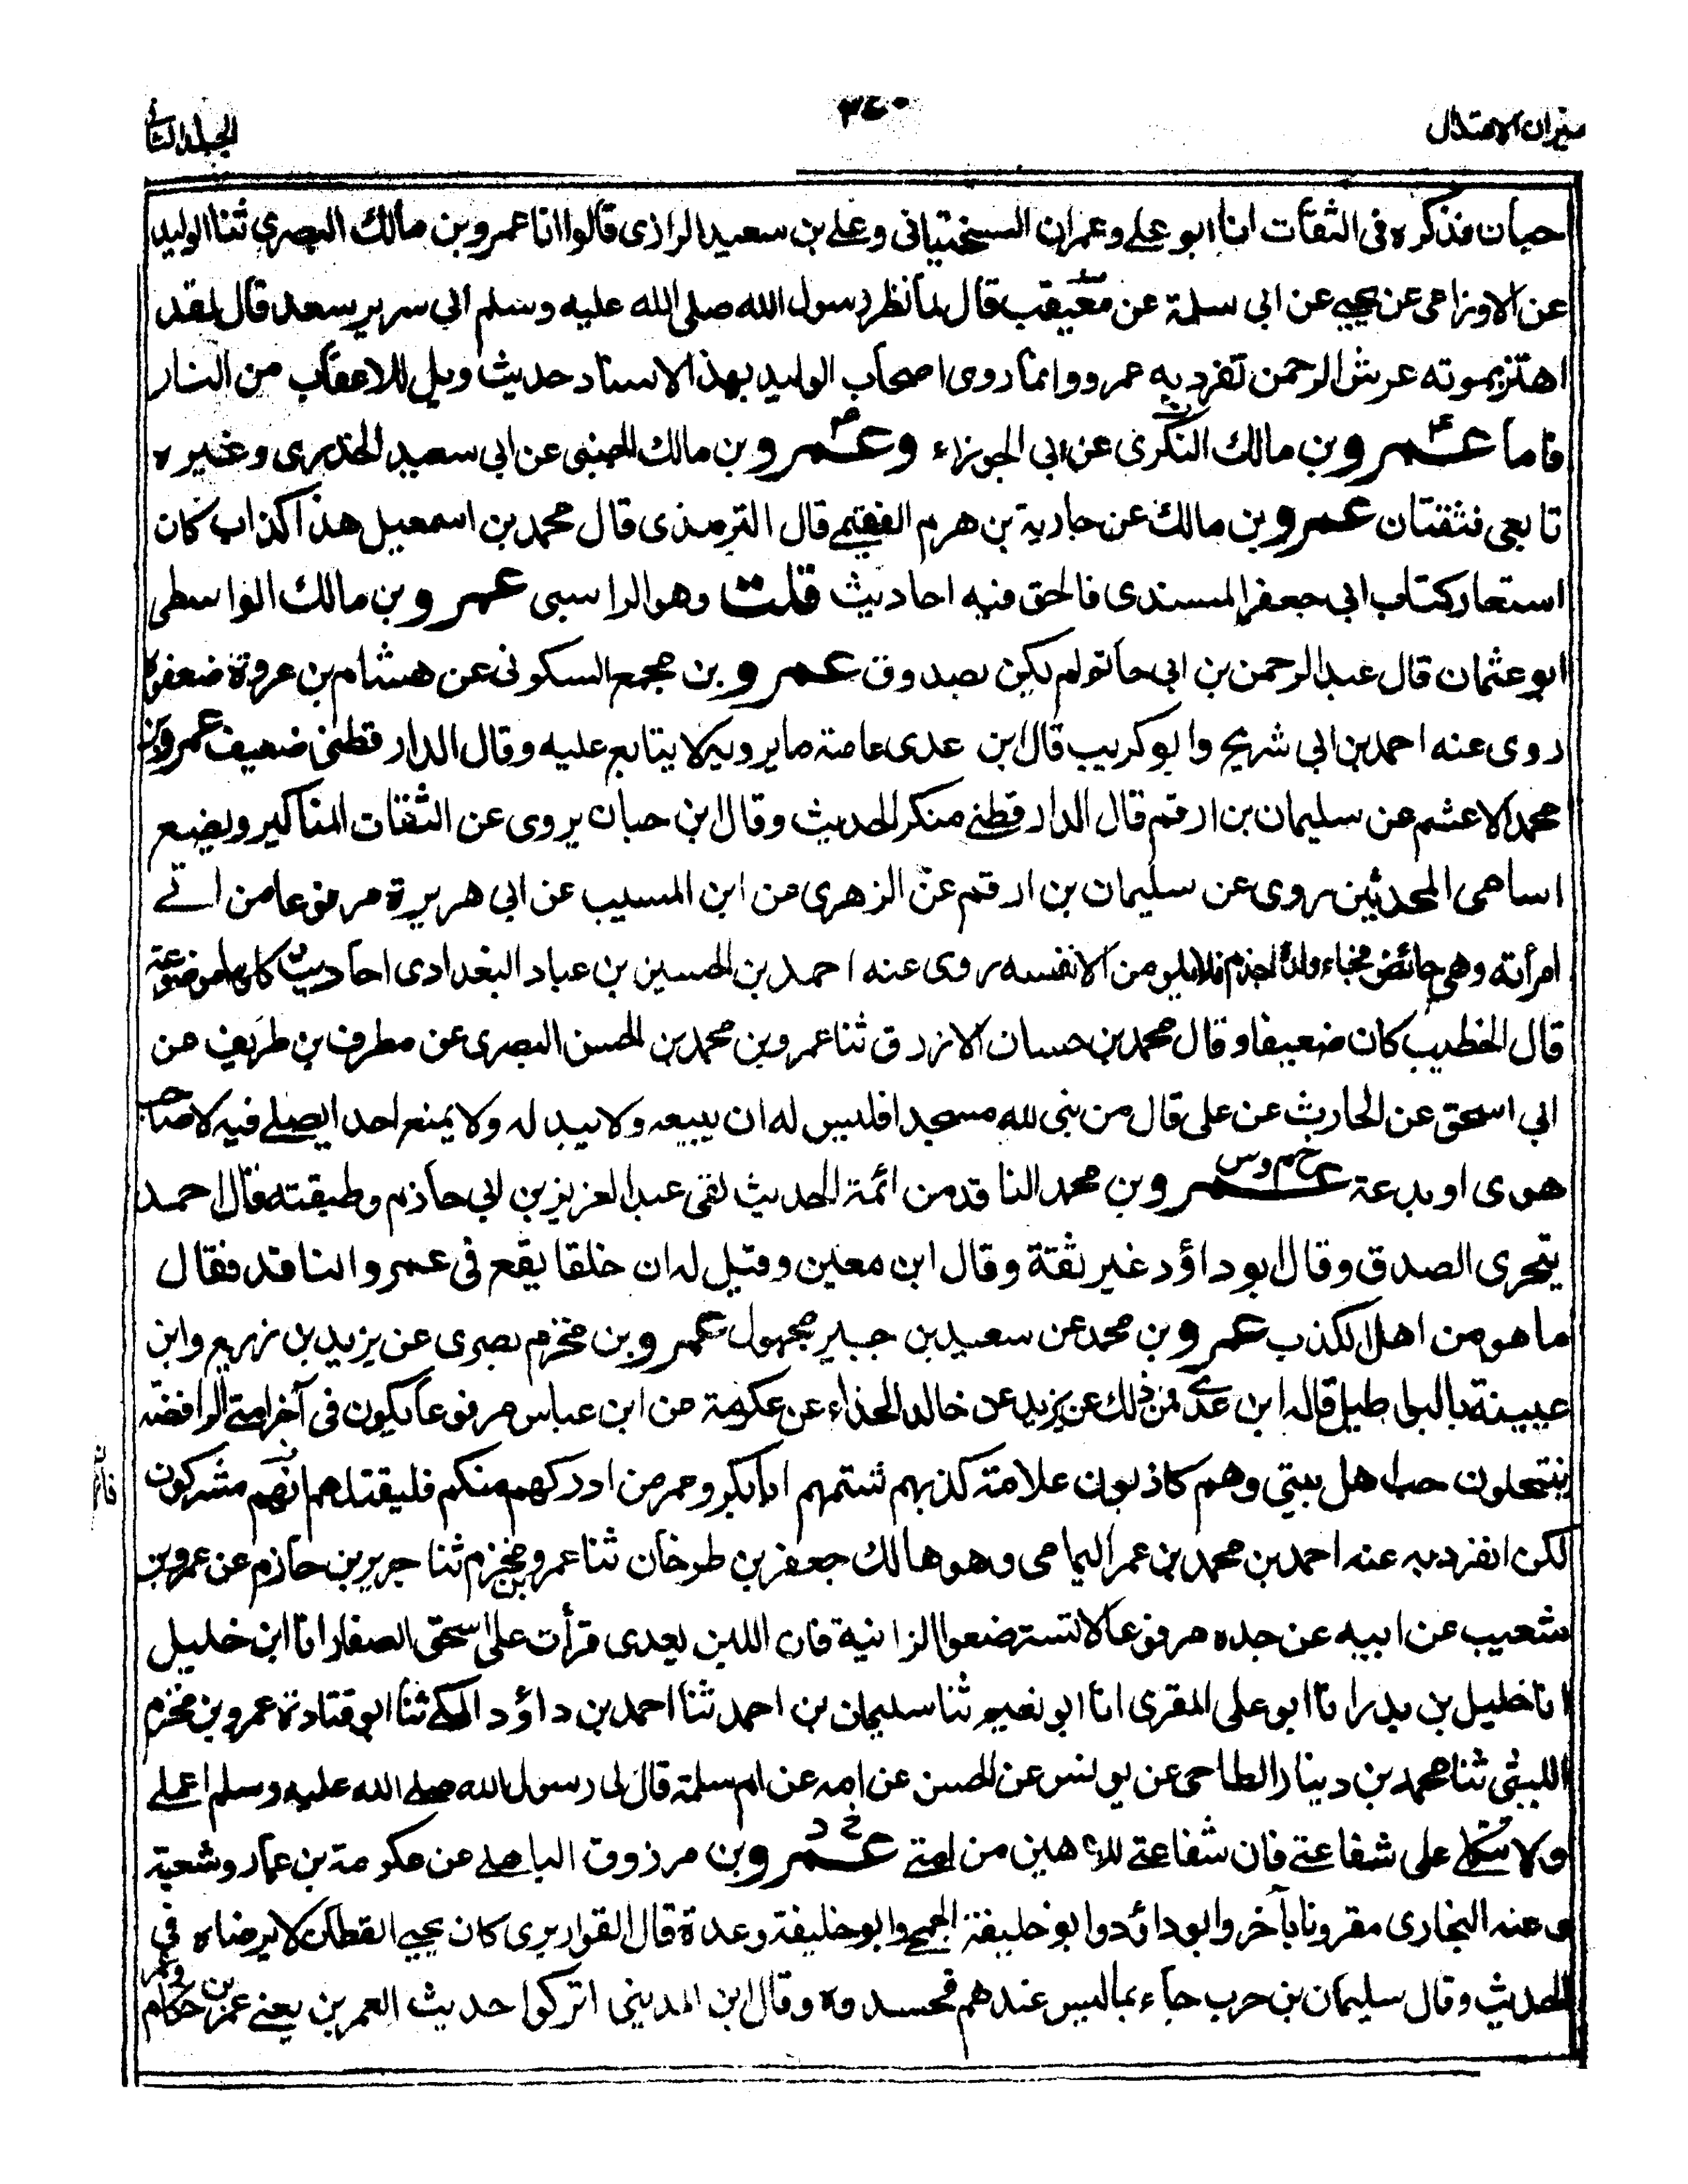 ميزان الاعتدال
٣٤٠
الجلد الثاني
حبان فذكره فى الثقات انا ابو علے وعمران السختيانى وعلے بن سعيد الرازى قالوا انا عمرو بن مالك البصري ثنا الوليد
عن الاوزاعى عن يحيے عن ابى سلمة عن معيقب قال لما نظر رسول الله صلى الله عليه وسلم الى سرير سعد قال لقد
اهتز بموته عرش الرحمن تفرد به عمرو وانما روى اصحاب الوليد بهذا الاسناد حديث ويل للاعقاب من النار
فاما عمرو بن مالك النكرى عن ابى الجوزاء وعمرو بن مالك الجنبى عن ابي سعيد الخدرى وغيره
تابعى فثقتان عمرو بن مالك عن جارية بن هرم الفقيمے قال الترمذى قال محمد بن اسمعيل هذا كذاب كان
استعار كتاب ابى جعفر المسندى فالحق فيه احاديث قلت وهو الراسبى عمرو بن مالك الواسطى
ابو عثمان قال عبد الرحمن بن ابى حاتم لم يكن بصدوق عمرو بن مجمع السكونى عن هشام بن عروة ضعفوه
روى عنه احمد بن ابى شريح وابو كريب قال ابن عدى عامة ما يرويه لا يتابع عليه وقال الدارقطنى ضعيف عمرو بن
محمد الاعشم عن سليمان بن ارقم قال الدارقطنے منكر الحديث وقال ابن حبان يروى عن الثقات المناكير ويضع
اسامى المحدثين روى عن سليمان بن ارقم عن الزهرى عن ابن المسيب عن ابى هريرة مرفوعا من اتے
امرأته وهى حائض فجاء ولدا اجذم فلا يلومن الا نفسه روى عنه احمد بن الحسين بن عباد البغدادى احاديث كلها موضوعة
قال الخطيب كان ضعيفا وقال محمد بن حسان الازرق ثنا عمرو بن محمد بن الحسن البصرى عن مطرف بن طريف عن
ابى اسحق عن الحارث عن على قال من بنى لله مسجدا فليس له ان يبيعه ولا يبدله ولا يمنع احدا يصلے فيه الا صاحب
هوى او بدعة عمرو خ م د س بن محمد الناقد من ائمة الحديث لقى عبد العزيز بن ابى حازم وطبقته قال احمد
يتحرى الصدق وقال ابو داؤد غير ثقة وقال ابن معين وقيل له ان خلقا يقع فى عمرو الناقد فقال
ما هو من اهل الكذب عمرو بن محمد عن سعيد بن جبير مجهول عمرو بن مخرم بصرى عن يزيد بن زريع وابن
عيينة بالبواطيل قاله ابن عدے فمن ذلك عن يزيد عن خالد الحذاء عن عكرمة عن ابن عباس مرفوعا يكون فى آخر امتے الرافضة
ينتحلون حب اهل بيتى وهم كاذبون علامة كذبهم شتمهم ابابكر وعمر من ادركهم منكم فليقتلهم انهم مشركون
لكن انفرد به عنه احمد بن محمد بن عمر اليمامى وهو هالك جعفر بن طرخان ثنا عمرو بن مخرم ثنا جرير بن حازم عن عمرو بن
شعيب عن ابيه عن جده مرفوعا لا تسترضعوا الزانية فان اللبن يعدى قرأت على اسحق الصفار انا ابن خليل
انا خليل بن بدر انا ابو على المقرى انا ابو نعيم ثنا سليمان بن احمد ثنا احمد بن داؤد المكے ثنا ابو قتادة عمرو بن مخرم
الليثى ثنا محمد بن دينار الطاحى عن يونس عن الحسن عن امه عن ام سلمة قال لى رسول الله صلے الله عليه وسلم اعملے
ولا تتكلے على شفاعتے فان شفاعتے للاهين من امتے عمرو خ د بن مرزوق الباهلے عن عكرمة بن عمار وشعبة
وعنه البخارى مقرونا بآخر وابو دائد وابو خليفة الجمحے وابو خليفة وعدة قال القواريرى كان يحيے القطان لا يرضاه فى
الحديث وقال سليمان بن حرب جاء بما ليس عندهم فحسدوه وقال ابن المدينى اتركوا حديث العمرين يعنے عمرو بن حكام وعمرو